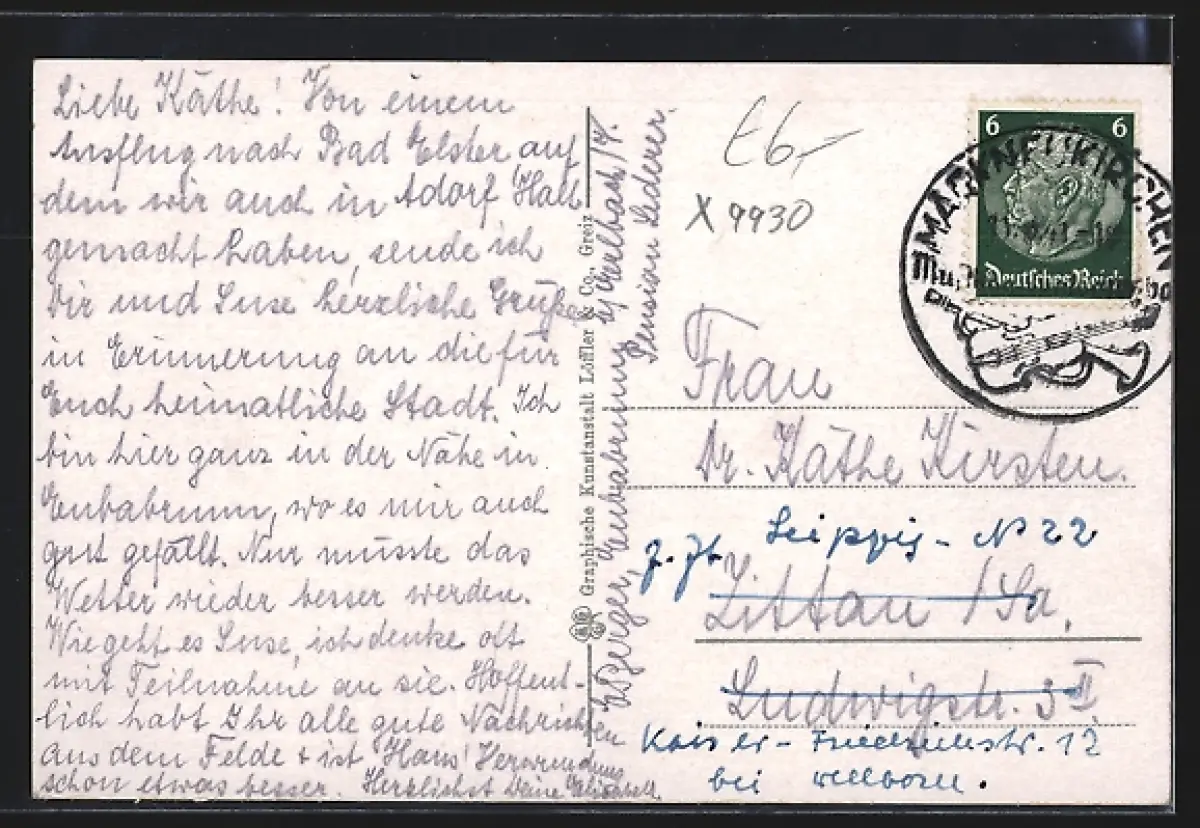 Liebe Käthe! Von einem
Ausflug nach Bad Elster auf
dem wir auch in Adorf Halt
gemacht haben, sende ich
Dir und Suse herzliche Grüße
in Erinnerung an die für
Euch heimatliche Stadt. Ich
bin hier ganz in der Nähe in
Eubabrunn, wo es mir auch
gut gefällt. Nur müsste das
Wetter wieder besser werden.
Wie geht es Suse, ich denke oft
mit Teilnahme an sie. Hoffent-
lich habt Ihr alle gute Nachrichten
aus dem Felde + ist Hans' Verwundung
schon etwas besser. Herzlichst Deine Elisabeth
Eubabrunn
Pension Lederer.
Graphische Kunstanstalt Löffler & Co., Greiz
E6,-
X 9930
6 6
Deutsches Reich
MARKNEUKIRCHEN
Frau
Dr. Käthe Kirsten.
z. Zt. Leipzig - N 22
Zittau /Sa.
Ludwigstr. 3 II
Kaiser-Friedrichstr. 12
bei